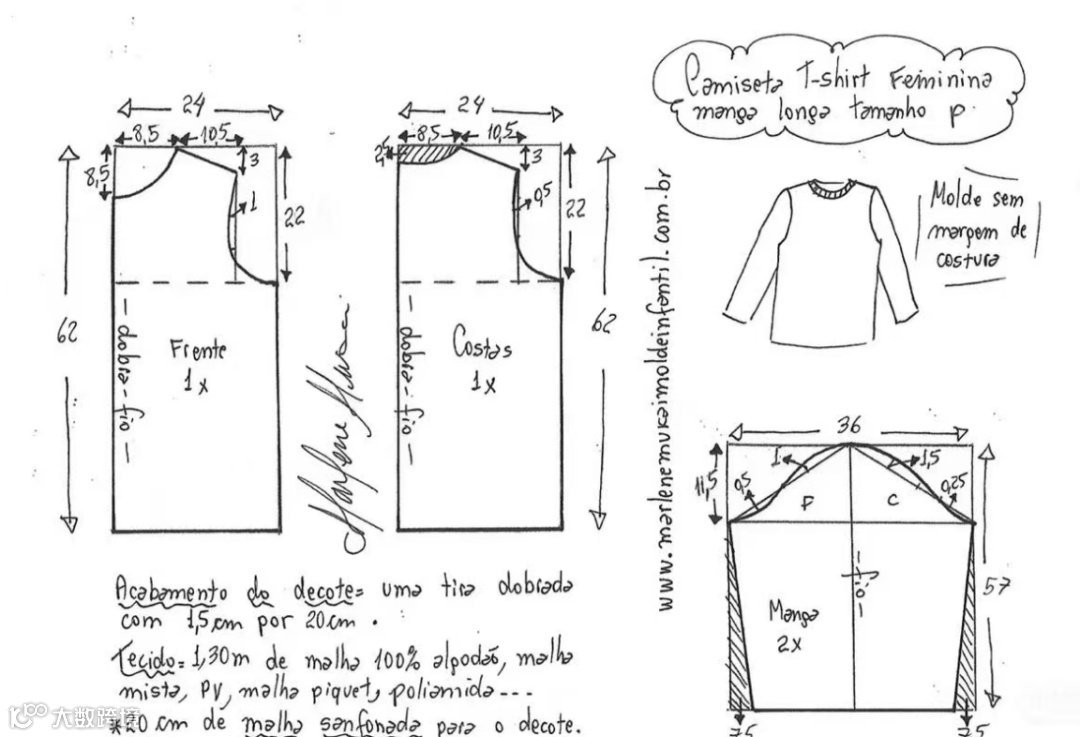 Camiseta T-shirt Feminina
manga longa tamanho P.
Molde sem
margem de
costura
www.marlenemukaimoldeinfantil.com.br
24
8,5
10,5
8,5
3
1
22
62
dobra-fio
Frente
1x
24
8,5
10,5
3
0,5
22
62
dobra-fio
Costas
1x
36
11,5
0,5
1
1,5
0,25
F
C
57
fio
Manga
2x
7,5
7,5
Acabamento do decote= uma tira dobrada
com 1,5cm por 20cm.
Tecido= 1,30m de malha 100% algodão, malha
mista, PV, malha piquet, poliamida---
*20 cm de malha sanfonada para o decote.
大数跨境